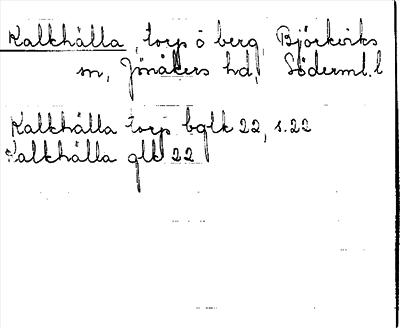 Kalkhälla, torp o berg, Björkviks
sn, Jönåkers hd, Söderml. l
Kalkhälla torp bglk 22, s. 22
Kalkhälla glk 22